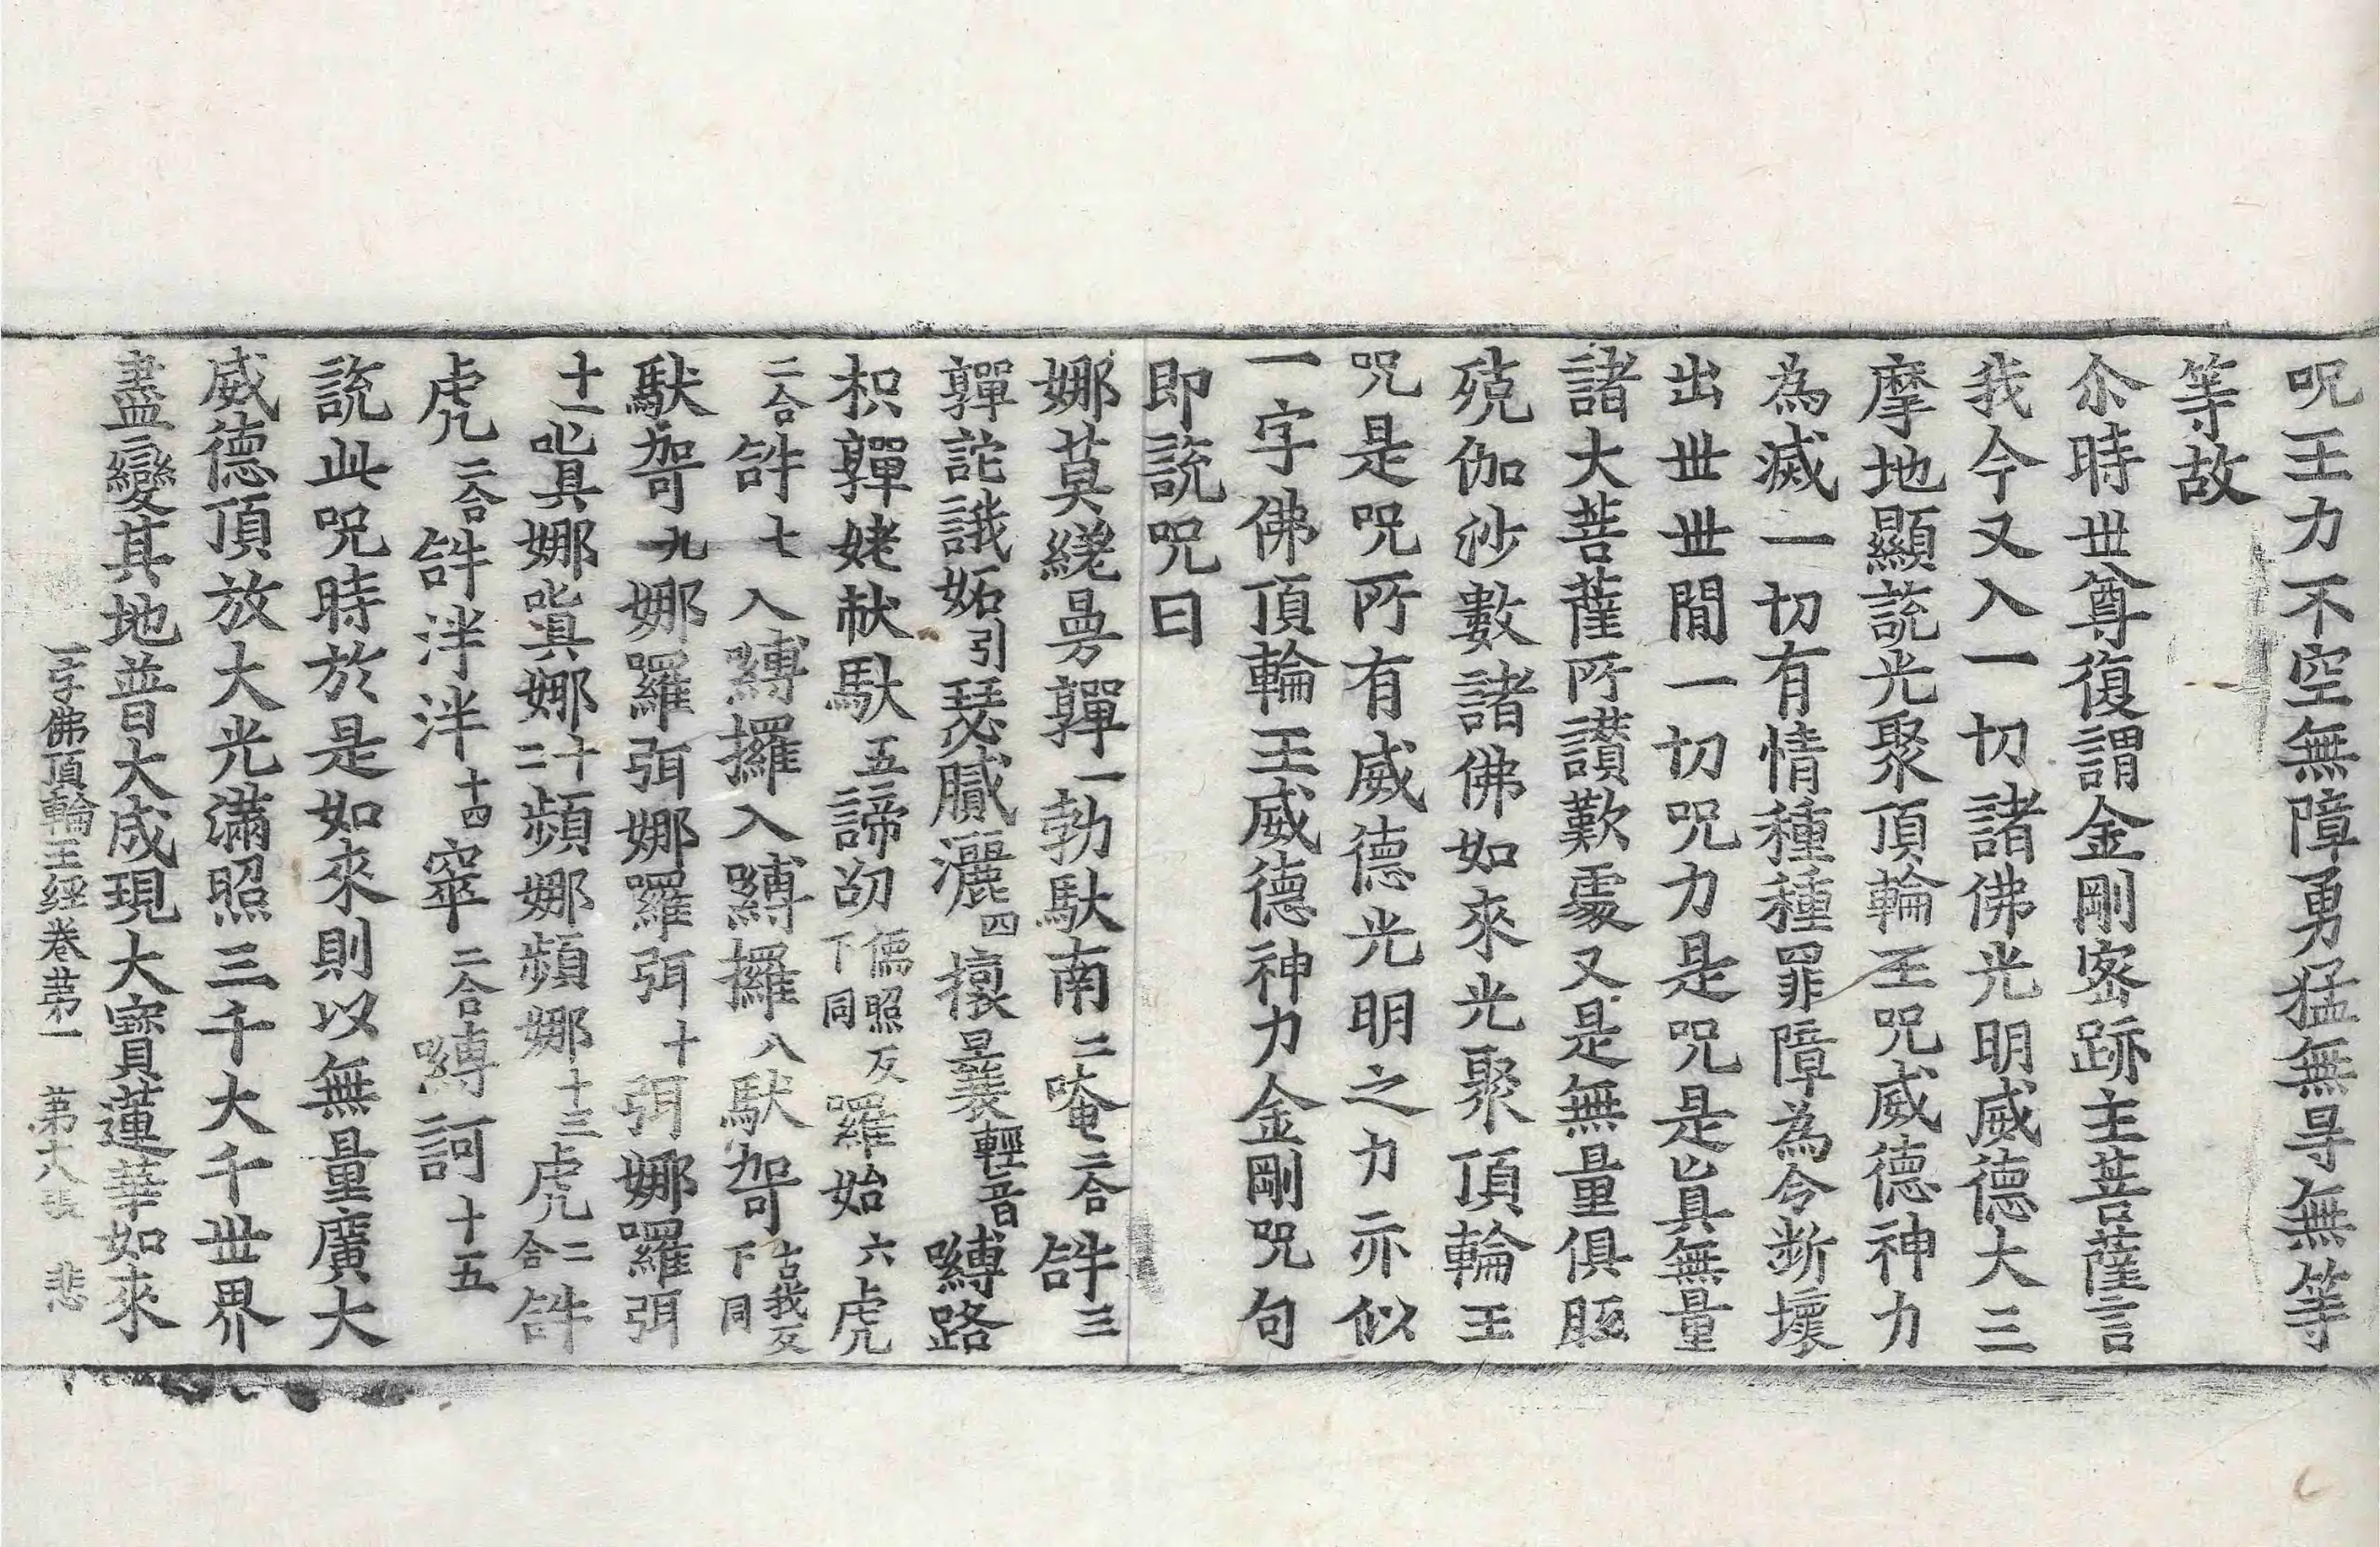 呪王力不空無障勇猛無㝵無等
等故
尒時世尊復謂金剛密跡主菩薩言
我今又入一切諸佛光明威德大三
摩地顯說光聚頂輪王呪威德神力
為滅一切有情種種罪障為令斷壞
出世世間一切呪力是呪是㫖具無量
諸大菩薩所讚歎處又是無量俱胝
殑伽沙數諸佛如來光聚頂輪王
呪是呪所有威德光明之力亦似
一字佛頂輪王威德神力金剛呪句
即說呪曰
娜莫縒曼嚲一勃馱南二唵二合𤙖三
嚲詫誐妬引瑟膩灑四攘曩輕音嚩路
枳嚲姥㰤馱五諦㓭儒照反下同囉始六虎
二合𤙖七入嚩攞入嚩攞八馱㗎古我反下同
馱㗎九娜囉弭娜囉弭十弭娜囉弭
十一嗔娜嗔娜十二頻娜頻娜十三虎二合𤙖
虎二合𤙖泮泮十四窣二合嚩訶十五
說此呪時於是如來則以無量廣大
威德頂放大光滿照三千大千世界
盡變其地普大成現大寶蓮華如來
一字佛頂輪王經卷苐一　苐十八張　悲